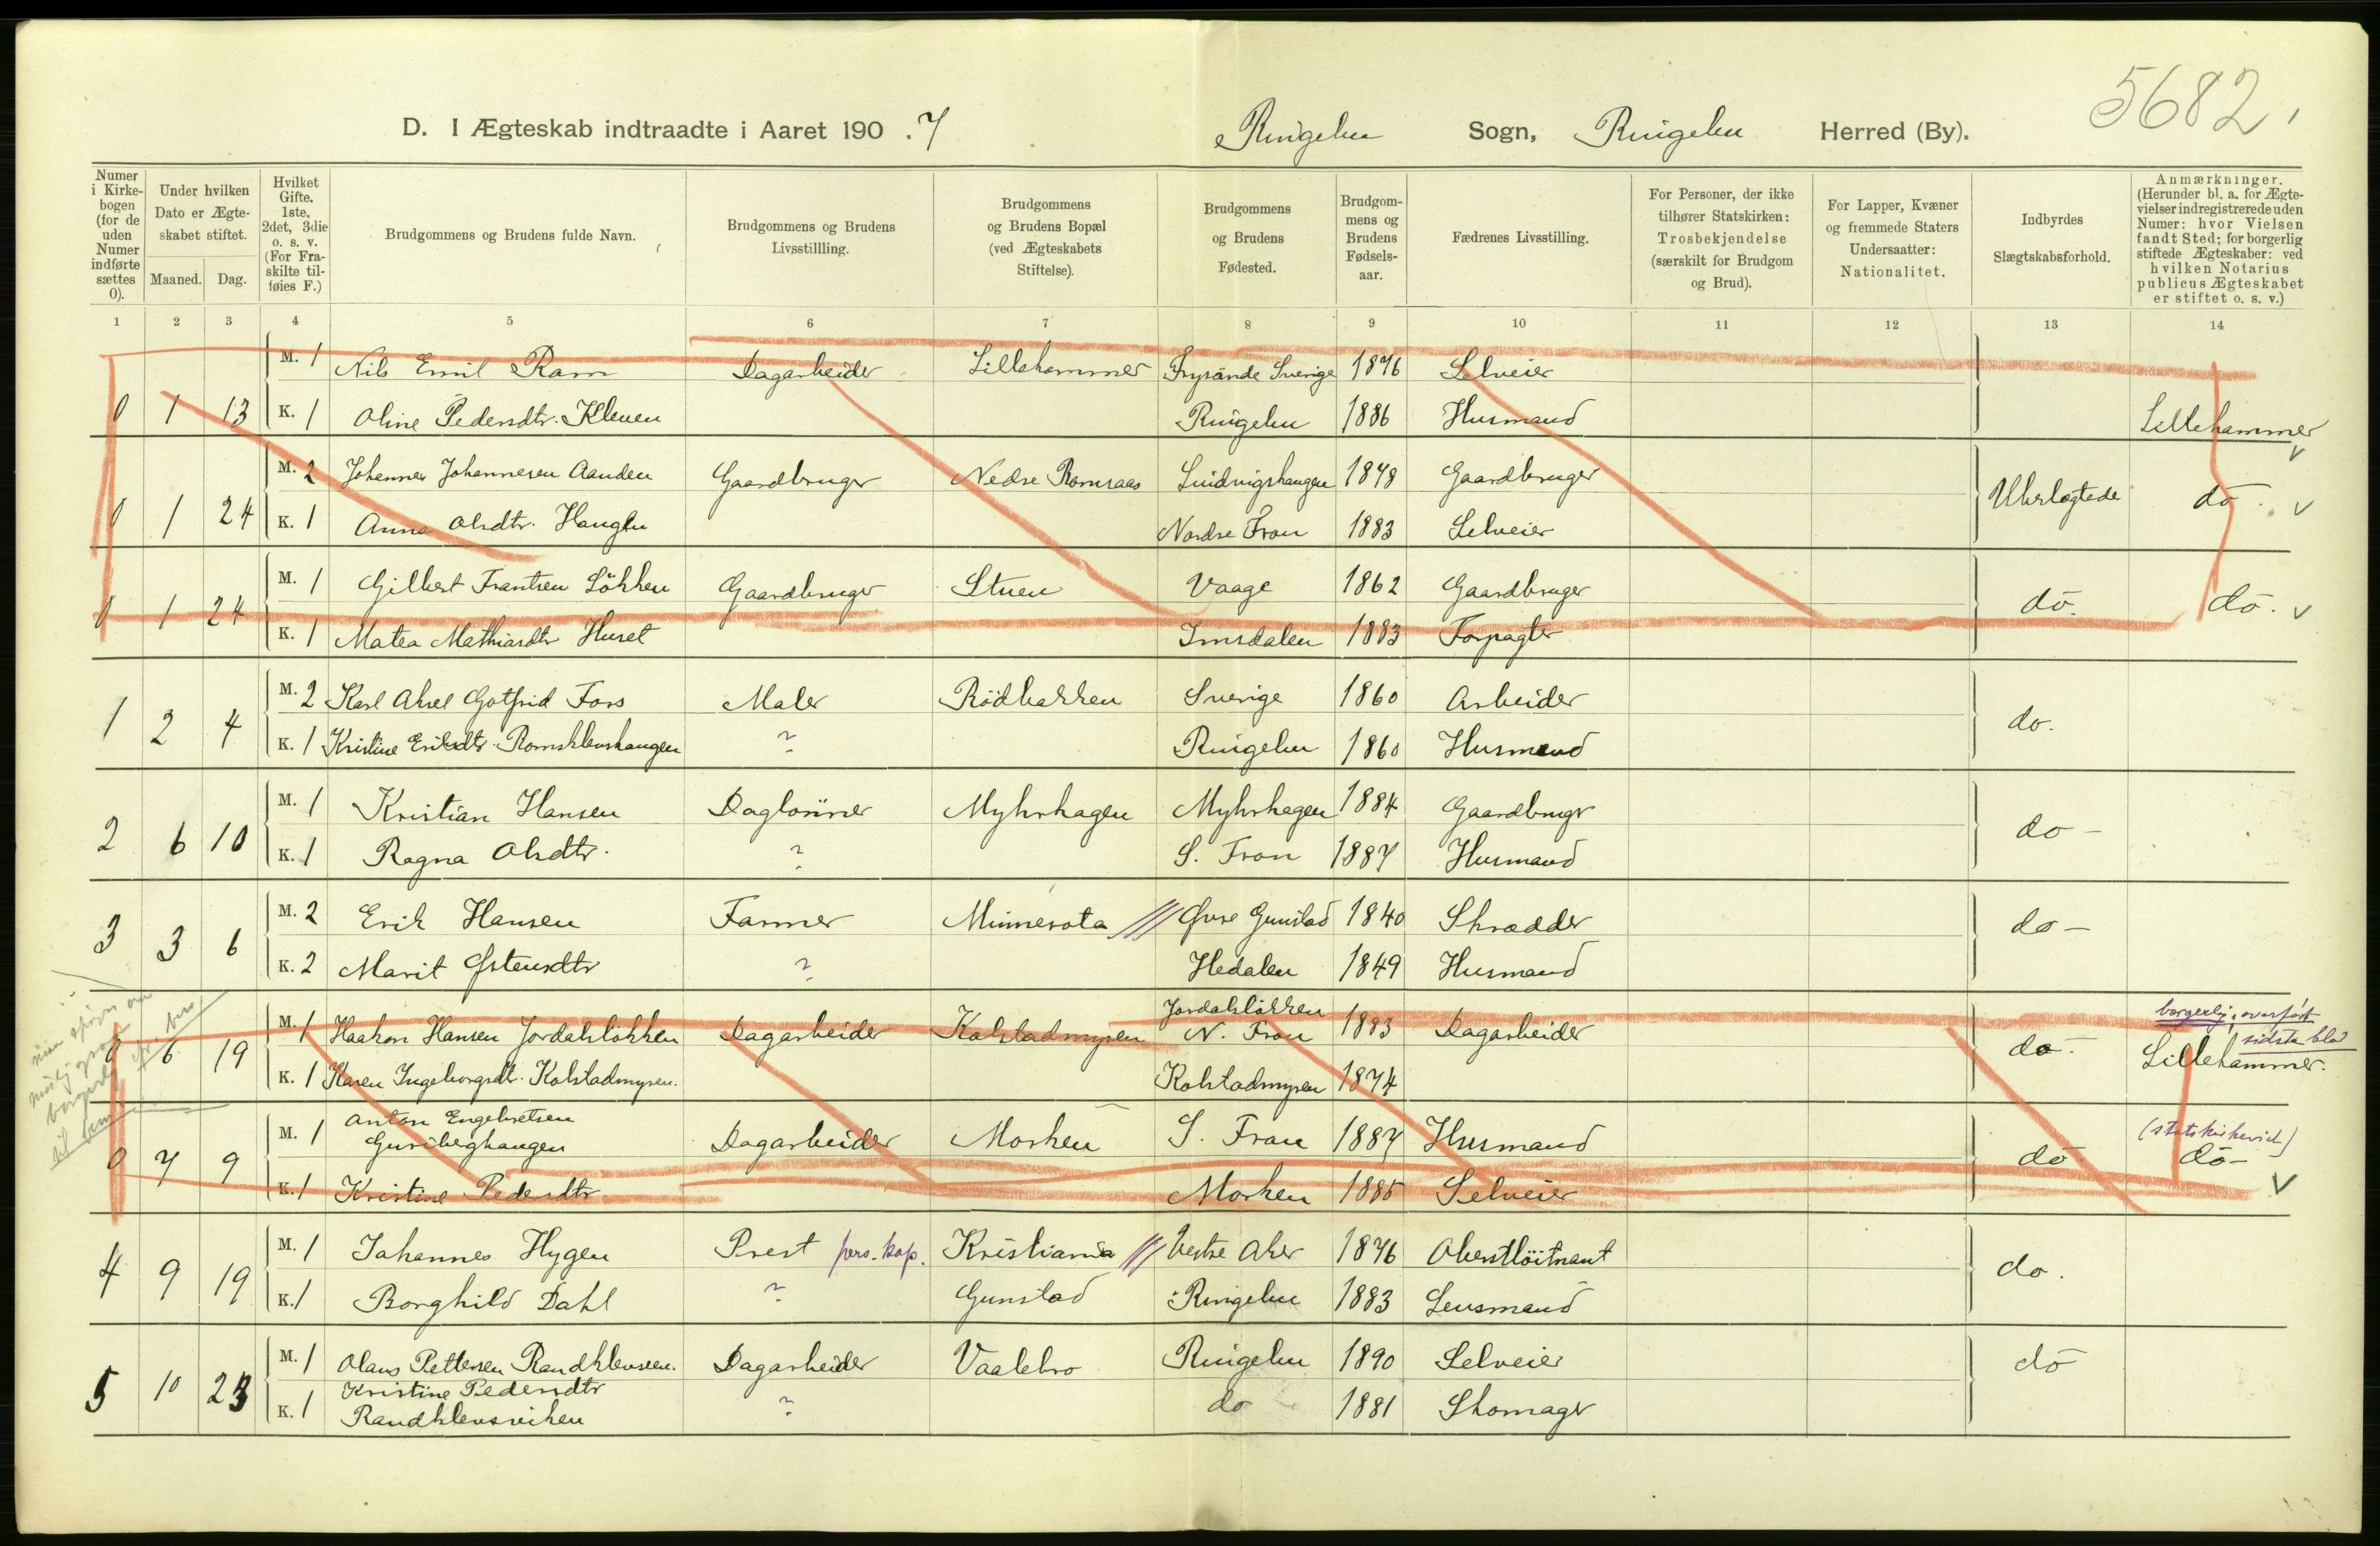 5682,
D. I Ægteskab indtraadte i Aaret 190.7 Ringebu Sogn, Ringebu Herred (By).
Numer i Kirkebogen (for de uden Numer indførte sættes 0).
Under hvilken Dato er Ægteskabet stiftet.
Maaned. Dag.
Hvilket Gifte. 1ste, 2det, 3die o. s. v. (For Fraskilte tilføies F.)
Brudgommens og Brudens fulde Navn.
Brudgommens og Brudens Livsstillling.
Brudgommens og Brudens Bopæl (ved Ægteskabets Stiftelse).
Brudgommens og Brudens Fødested.
Brudgommens og Brudens Fødselsaar.
Fædrenes Livsstilling.
For Personer, der ikke tilhører Statskirken: Trosbekjendelse (særskilt for Brudgom og Brud).
For Lapper, Kvæner og fremmede Staters Undersaatter: Nationalitet.
Indbyrdes Slægtskabsforhold.
Anmærkninger. (Herunder bl. a. for Ægtevielser indregistrerede uden Numer: hvor Vielsen fandt Sted; for borgerlig stiftede Ægteskaber: ved hvilken Notarius publicus Ægteskabet er stiftet o. s. v.)
1 2 3 4 5 6 7 8 9 10 11 12 13 14
M. 1 Nils Emil Ram Dagarbeider Lillehammer Sverige 1876 Selveier
0 1 13 K. 1 Oline Pedersdtr. Kleven Ringebu 1886 Husmand Lillehammer
M. 2 Johannes Johannesen Aanden Gaardbruger Nedre Romsaas 1878 Gaardbruger
0 1 24 K. 1 Anna Olsdtr. Nordre Fron 1883 Selveier Ubeslægtede do. v
M. 1 Gilbert Frantsen Løkken Gaardbruger Stuen Vaage 1862 Gaardbruger
0 1 24 K. 1 Matea Mathiasdtr Huset Imsdalen 1883 Forpagter do. do. v
M. 2 Karl Aksel Gotfrid Fors Maler Rödbakken Sverige 1860 Arbeider
1 2 4 K. 1 Kristine Eriksdtr. Romsklevshaugen ? Ringebu 1860 Husmand do.
M. 1 Kristian Hansen Daglønner Myhrhagen Myhrhagen 1884 Gaardbruger
2 6 10 K. 1 Ragna Olsdtr. ? S. Fron 1887 Husmand do -
M. 2 Erik Hansen Farmer Minnesota /// Øvre Gunstad 1840 Skrædder
3 3 6 K. 2 Marit Østensdtr ? Hedalen 1849 Husmand do -
M. 1 Haakon Hansen Jordalsløkken Dagarbeider Kolstadmyren Jordalsløkken N. Fron 1883 Dagarbeider borgerlig, overført sidste blad
0 6 19 K. 1 Karen Ingeborgsdt. Kolstadmyren. Kolstadmyren 1874 do. Lillehammer.
M. 1 Anton Engebretsen
Guribeghaugen Dagarbeider Morken S. Fron 1887 Husmand (statskirkevid)
0 7 9 K. 1 Kristine Pedersdtr. Morken 1885 Selveier do do - v
M. 1 Johannes Hygen Prest pers. kap. Kristiania /// Vestre Aker 1876 Oberstløitnant
4 9 19 K. 1 Borghild Dahl ? Gunstad Ringebu 1883 Lensmand do.
M. 1 Olaus Pettersen Randklevseen. Dagarbeider Vaalebro Ringebu 1890 Selveier
5 10 23 K. 1 Kristine Pedersdtr
Randklevsviken ? do 1881 Skomager do